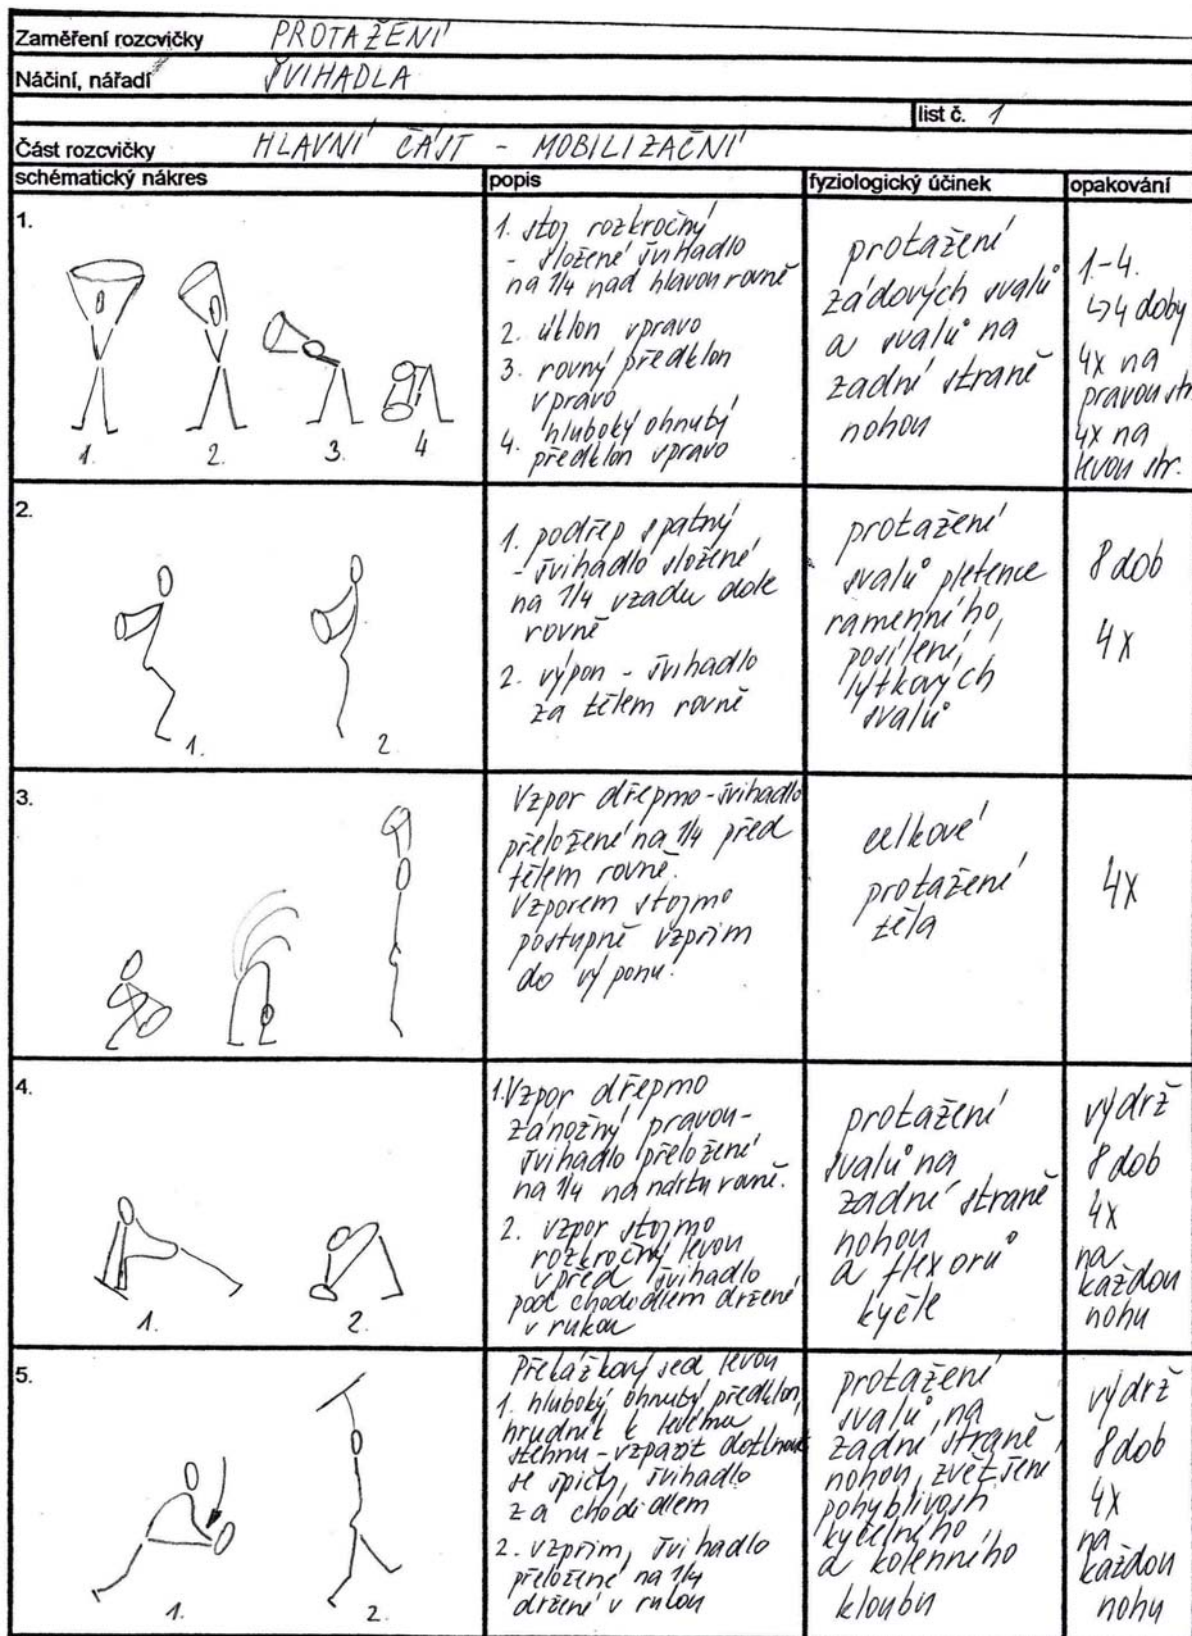 Zaměření rozcvičky PROTAŽENÍ
Náčiní, nářadí ŠVIHADLA
list č. 1
Část rozcvičky HLAVNÍ ČÁST - MOBILIZAČNÍ
schématický nákres popis fyziologický účinek opakování
1.
1. 2. 3. 4
1. stoj rozkročný
- složené švihadlo
na 1/4 nad hlavou rovně
2. úklon vpravo
3. rovný předklon
vpravo
4. hluboký ohnutý
předklon vpravo
protažení
zádových svalů
a svalů na
zadní straně
nohou
1-4.
↳ 4 doby
4x na
pravou str.
4x na
levou str.
2.
1. 2.
1. podřep spatný
- švihadlo složené
na 1/4 vzadu dole
rovně
2. výpon - švihadlo
za tělem rovně
protažení
svalů pletence
ramenního,
posílení
lýtkových
svalů
8 dob
4x
3.
Vzpor dřepmo - švihadlo
přeložené na 1/4 před
tělem rovně.
Vzporem stojmo
postupně vzprim
do výponu.
celkové
protažení
těla
4x
4.
1. 2.
1. Vzpor dřepmo
zánožný pravou -
švihadlo přeložené
na 1/4 na nártu rovně.
2. vzpor stojmo
rozkročný levou
vpřed švihadlo
pod chodidlem držené
v rukou
protažení
svalů na
zadní straně
nohou
a flexorů
kyčle
výdrž
8 dob
4x
na
každou
nohu
5.
1. 2.
Překážkový sed levou
1. hluboký ohnutý předklon,
hrudník k levému
stehnu - vzpažit dotknout
se špičky, švihadlo
za chodidlem
2. vzprim, švihadlo
přeložené na 1/4
držené v rukou
protažení
svalů na
zadní straně
nohou, zvětšení
pohyblivosti
kyčelního
a kolenního
kloubu
výdrž
8 dob
4x
na
každou
nohu